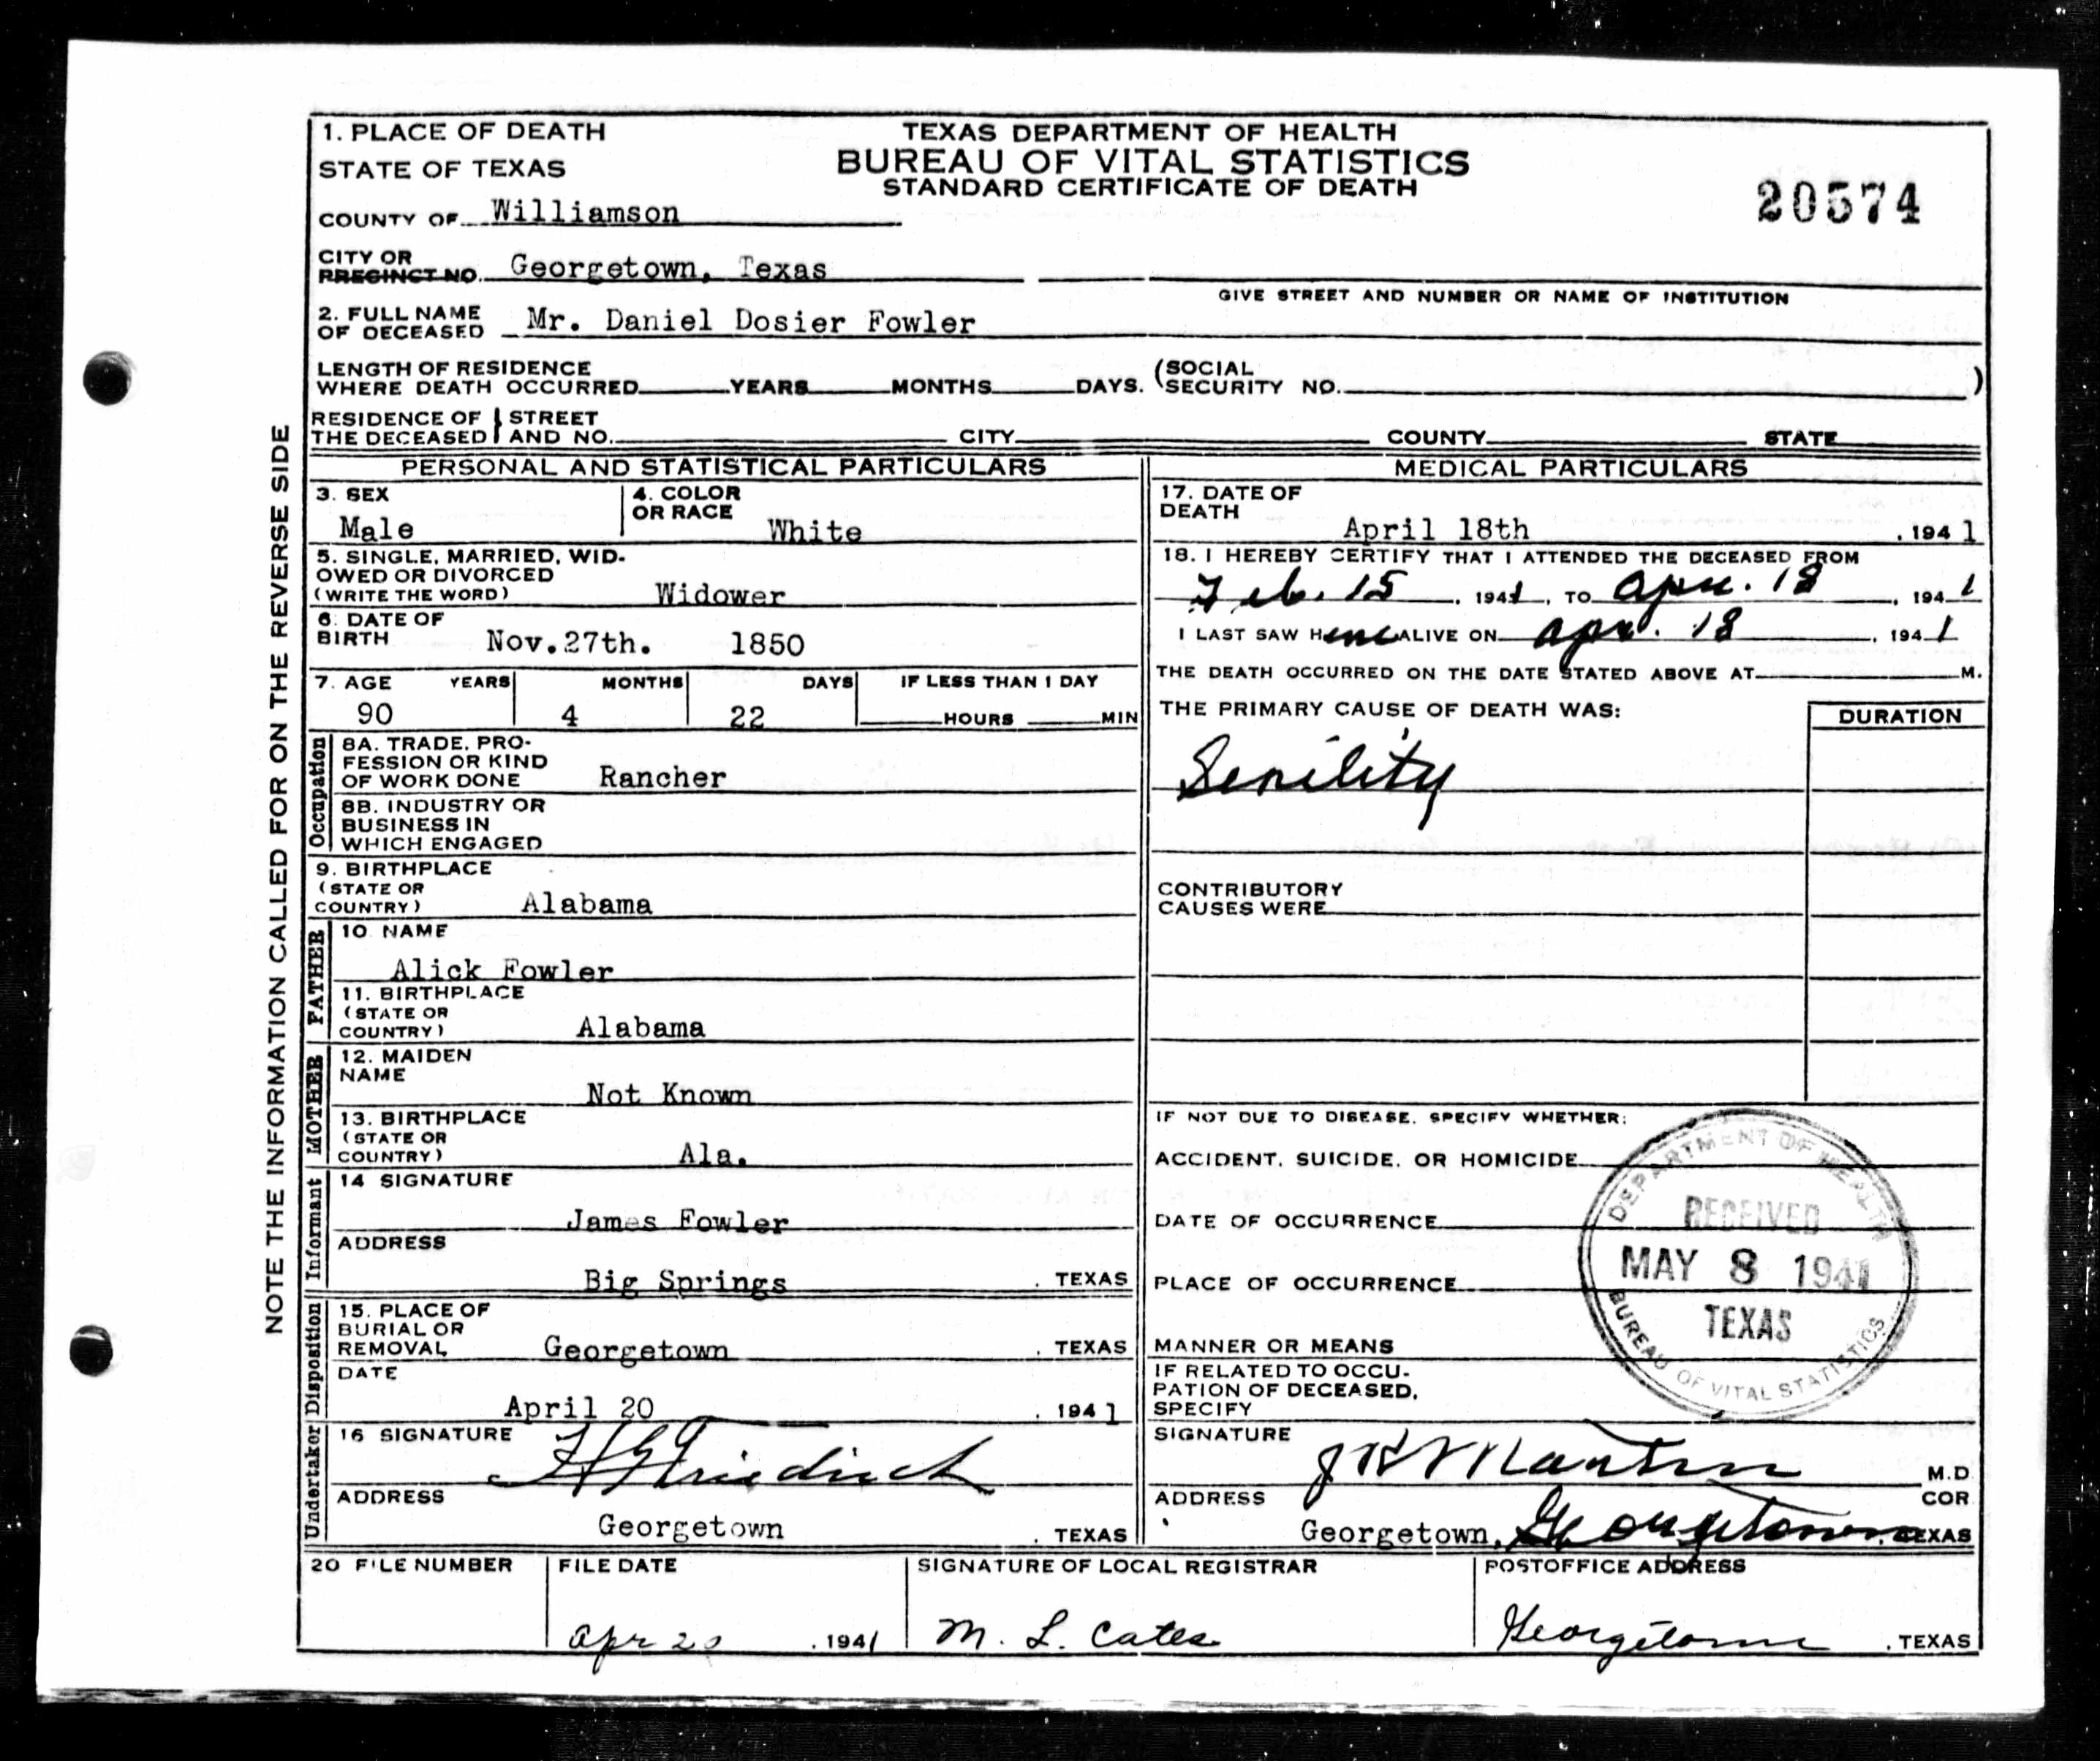 NOTE THE INFORMATION CALLED FOR ON THE REVERSE SIDE
1. PLACE OF DEATH
STATE OF TEXAS
COUNTY OF Williamson
CITY OR
PRECINCT NO. Georgetown, Texas
TEXAS DEPARTMENT OF HEALTH
BUREAU OF VITAL STATISTICS
STANDARD CERTIFICATE OF DEATH
20574
GIVE STREET AND NUMBER OR NAME OF INSTITUTION
2. FULL NAME
OF DECEASED Mr. Daniel Dosier Fowler
LENGTH OF RESIDENCE
WHERE DEATH OCCURRED YEARS MONTHS DAYS. (SOCIAL
SECURITY NO. )
RESIDENCE OF STREET
THE DECEASED AND NO. CITY COUNTY STATE
PERSONAL AND STATISTICAL PARTICULARS
3. SEX
Male
4. COLOR
OR RACE White
5. SINGLE, MARRIED, WID-
OWED OR DIVORCED
(WRITE THE WORD) Widower
6. DATE OF
BIRTH Nov.27th. 1850
7. AGE YEARS MONTHS DAYS IF LESS THAN 1 DAY
90 4 22 HOURS MIN
Occupation
8A. TRADE, PRO-
FESSION OR KIND
OF WORK DONE Rancher
8B. INDUSTRY OR
BUSINESS IN
WHICH ENGAGED
9. BIRTHPLACE
(STATE OR
COUNTRY) Alabama
FATHER
10 NAME
Alick Fowler
11. BIRTHPLACE
(STATE OR
COUNTRY) Alabama
MOTHER
12. MAIDEN
NAME
Not Known
13. BIRTHPLACE
(STATE OR
COUNTRY) Ala.
Informant
14 SIGNATURE
James Fowler
ADDRESS
Big Springs , TEXAS
Disposition
15. PLACE OF
BURIAL OR
REMOVAL Georgetown , TEXAS
DATE
April 20 , 1941
Undertaker
16 SIGNATURE
ADDRESS
Georgetown , TEXAS
MEDICAL PARTICULARS
17. DATE OF
DEATH
April 18th , 1941
18. I HEREBY CERTIFY THAT I ATTENDED THE DECEASED FROM
Feb. 15 , 1941, TO Apr. 18 , 1941
I LAST SAW H ALIVE ON Apr. 18 , 1941
THE DEATH OCCURRED ON THE DATE STATED ABOVE AT M.
THE PRIMARY CAUSE OF DEATH WAS: DURATION
Senility
CONTRIBUTORY
CAUSES WERE
IF NOT DUE TO DISEASE, SPECIFY WHETHER:
ACCIDENT, SUICIDE, OR HOMICIDE
DATE OF OCCURRENCE
PLACE OF OCCURRENCE
MANNER OR MEANS
IF RELATED TO OCCU-
PATION OF DECEASED,
SPECIFY
DEPARTMENT OF HEALTH
RECEIVED
MAY 8 1941
TEXAS
BUREAU OF VITAL STATISTICS
SIGNATURE M.D
COR
ADDRESS
Georgetown, Georgetown, TEXAS
20 FILE NUMBER
FILE DATE
Apr 20 , 1941
SIGNATURE OF LOCAL REGISTRAR
M. L. Cates
POSTOFFICE ADDRESS
Georgetown , TEXAS